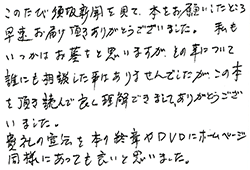 このたび須坂新聞を見て、本をお願いしたところ
早速お届け頂きありがとうございました。 私も
いつかはお墓をと思いますが、その事について
誰にも相談した事はありませんでしたが、この本
を頂き読んで良く理解できましてありがとうござい
いました。
貴社の宣伝を本の終章やDVDにホームページ
同様にあっても良いと思いました。